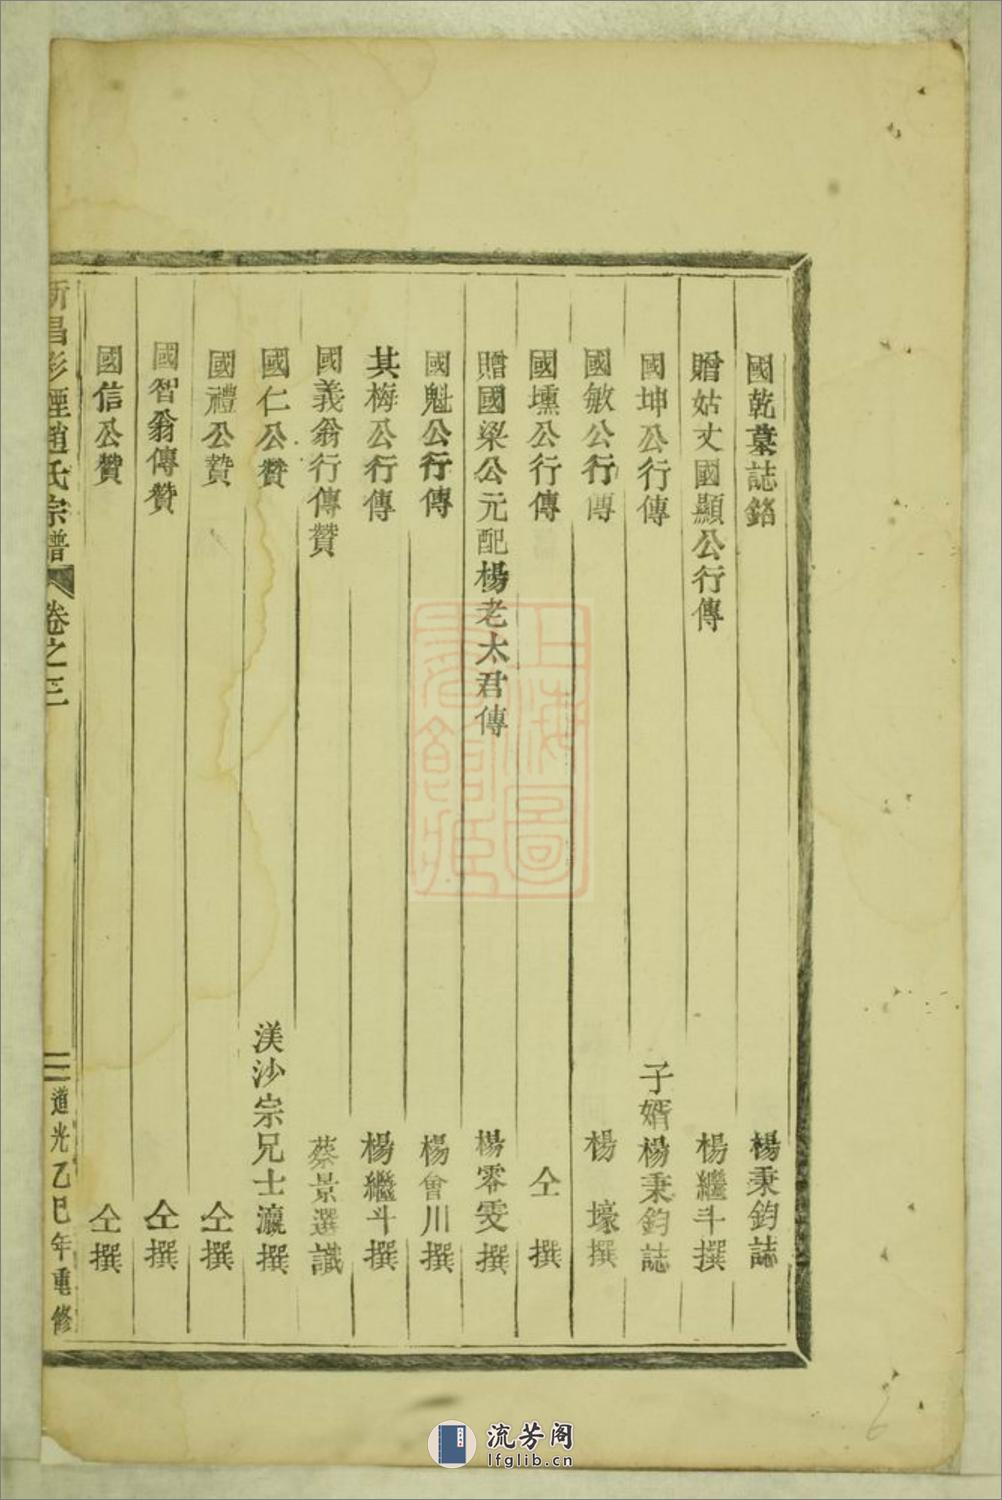 國乾墓誌銘 楊秉鈞誌
贈姑丈國顯公行傳 楊繼斗撰
國坤公行傳 子婿楊秉鈞誌
國敏公行傳 楊壕撰
國壎公行傳 仝撰
贈國梁公元配楊老太君傳 楊零雯撰
國魁公行傳 楊會川撰
其梅公行傳 楊繼斗撰
國義翁行傳贊 蔡景選識
國仁公贊 渼沙宗兄士瀛撰
國禮公贊 仝撰
國智翁傳贊 仝撰
國信公贊 仝撰
新昌彩煙趙氏宗譜 卷之三 二 道光乙巳年重修
上海圖
書館藏
流芳阁
lfglib.cn
6